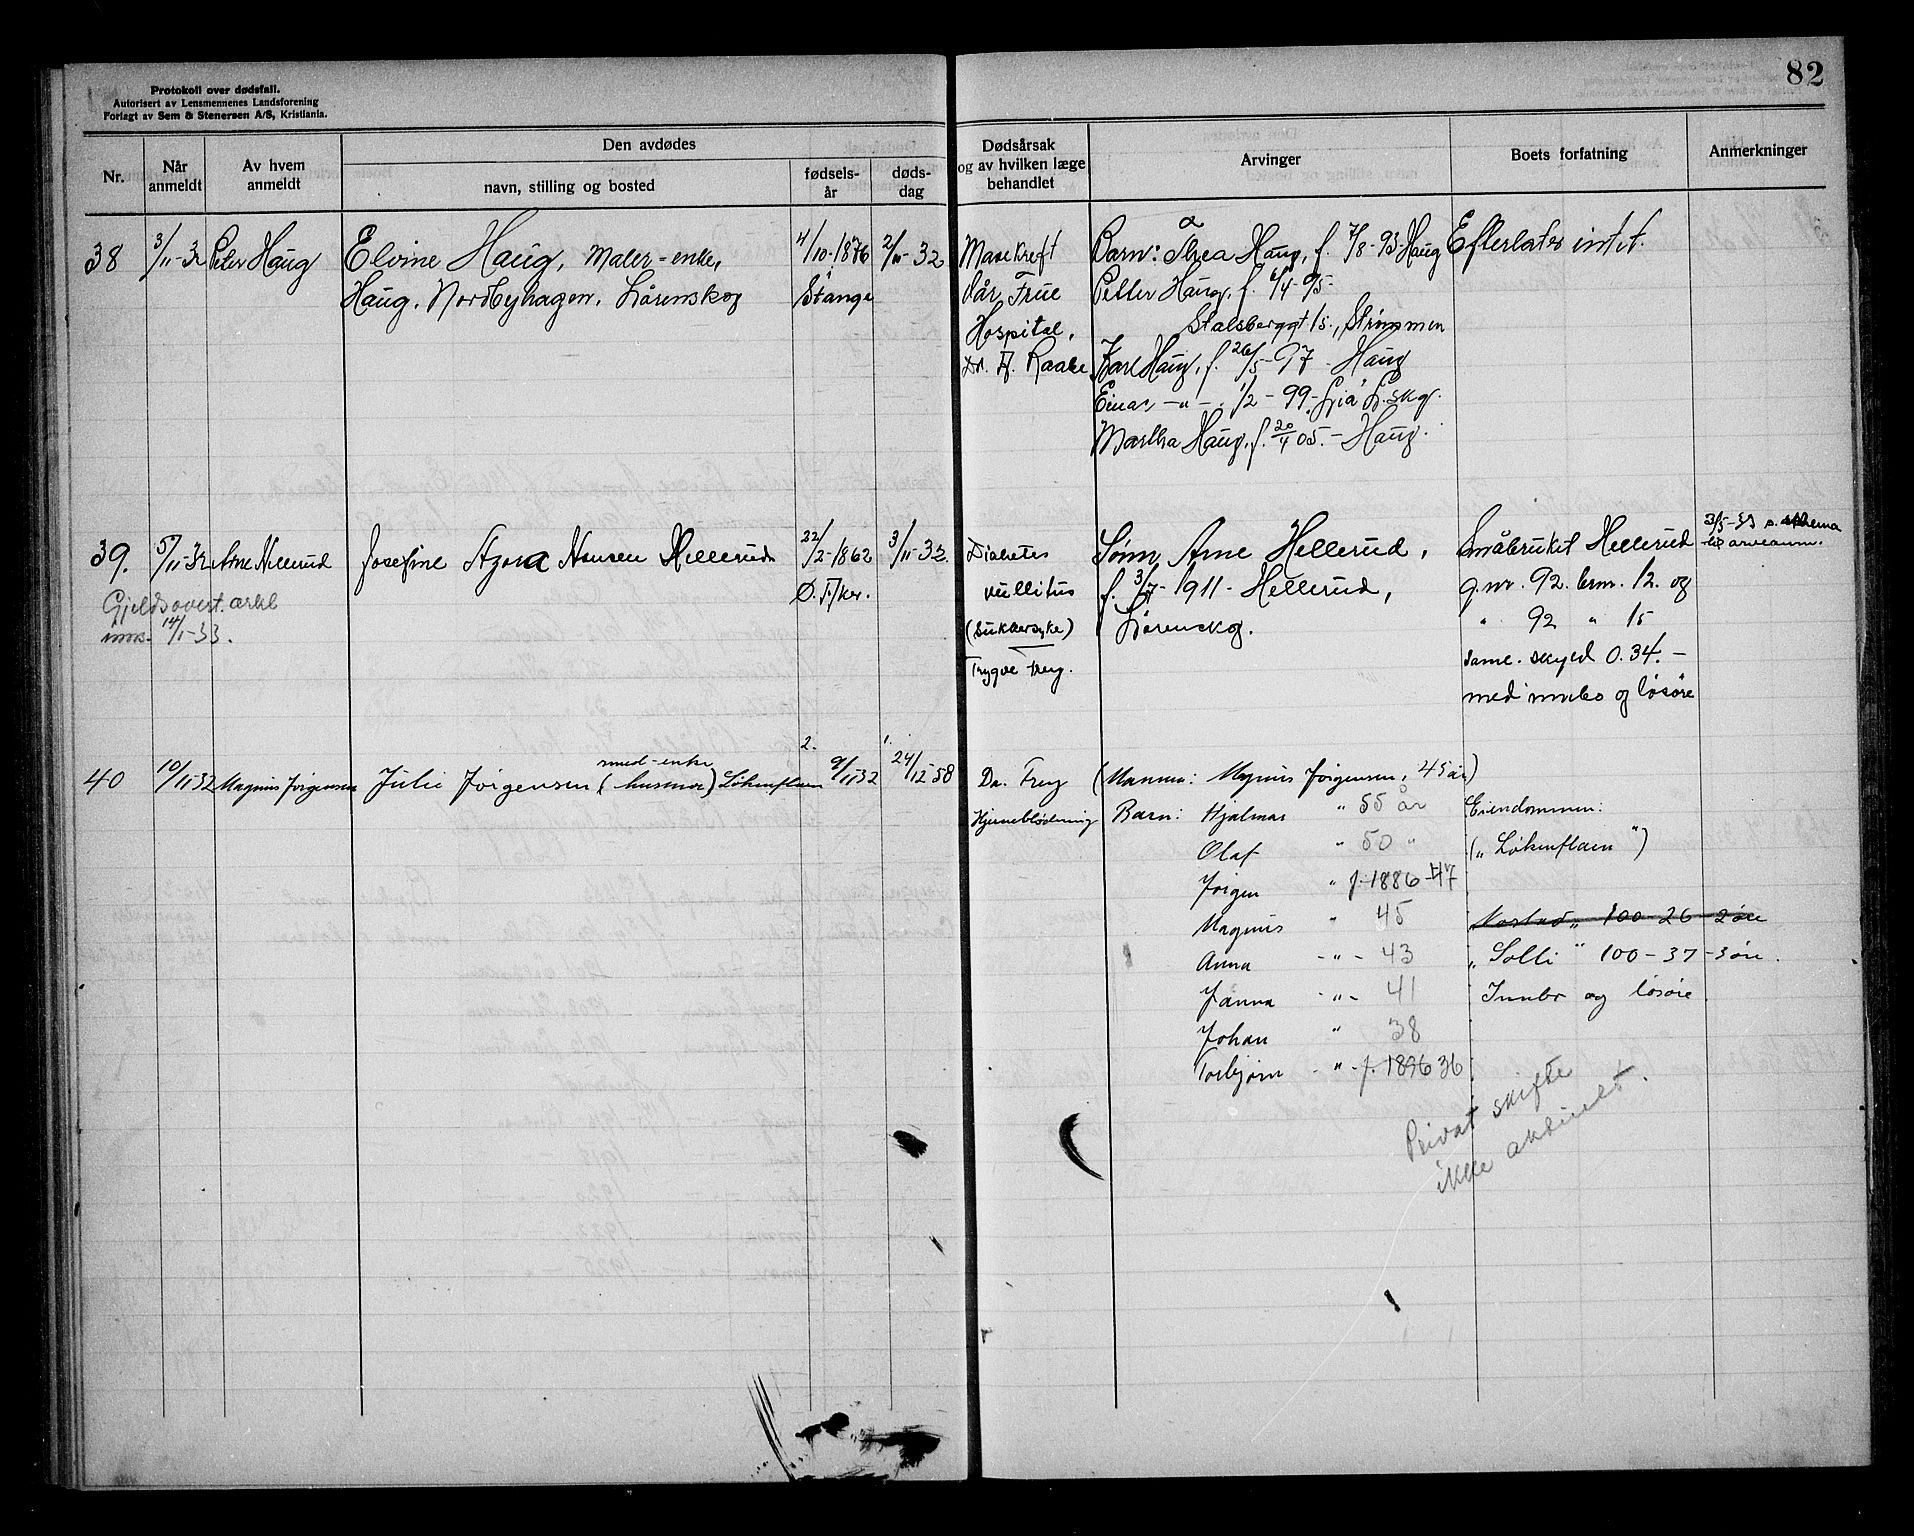 82
Protokoll over dødsfall.
Autorisert av Lensmennenes Landsforening
Forlagt av Sem & Stenersen A/S, Kristiania.
Nr.
Når anmeldt
Av hvem anmeldt
Den avdødes
navn, stilling og bosted
fødsels-år
døds-dag
Dødsårsak og av hvilken læge behandlet
Arvinger
Boets forfatning
Anmerkninger
38
3/11-32
Peter Haug
Elvine Haug, Maler-enke,
Haug, Nordbyhagen, Lörenskog
4/10-1876
Stange
2/11-32
Mavekreft
Vår Frue
Hospital,
Dr. Raabe
Barn: Thea Haug, f. 7/8-93-Haug
Petter Haug, f. 6/4-95-
Stalsberggt 15, Strömmen
Karl Haug, f. 26/5-97 - Haug
Einar -"- 1/2-99- L.skog.
Martha Haug, f. 20/4 05.- Haug.
Efterlater intet.
39.
5/11-32
Arne Hellerud
Gjeldsovert. erkl
14/1-33.
Josefine Hansen Hellerud
22/2-1862
Ø. T/ker.
3/11-32.
Diabetes
mellitus
(Sukkersyke)
Trygve Freng.
Sönn, Arne Hellerud,
f. 3/7-1911- Hellerud,
Lörenskog.
Småbruket Hellerud
g.nr. 92. brnr. 12. og
" 92 " 15
saml. skyld 0.34.-
med innbo og lösöre
3/5-33 s. skema
arveanm.
40
10/11-32
Magnus Jørgensen
smed-enke
Julie Jörgensen (husmor) Løkenflaen
2.
9/11-32
1.
24/12-58
Da. Freng
Hjerneblödning
(Mannen: Magnus Jørgensen, 45 år)
Barn: Hjalmar " 55 år
Olaf " 50 "
Jörgen " f. 1886-47
Magnus " 45
Anna -"- 43
Janna -"- 41
Johan " 38
Torbjørn -"- f. 1896 36
Eiendommen:
("Løkenflaen")
100-26-2øre
"Solli" 100-37-3öre.
Innbo og lösöre
Privat skifte
ikke